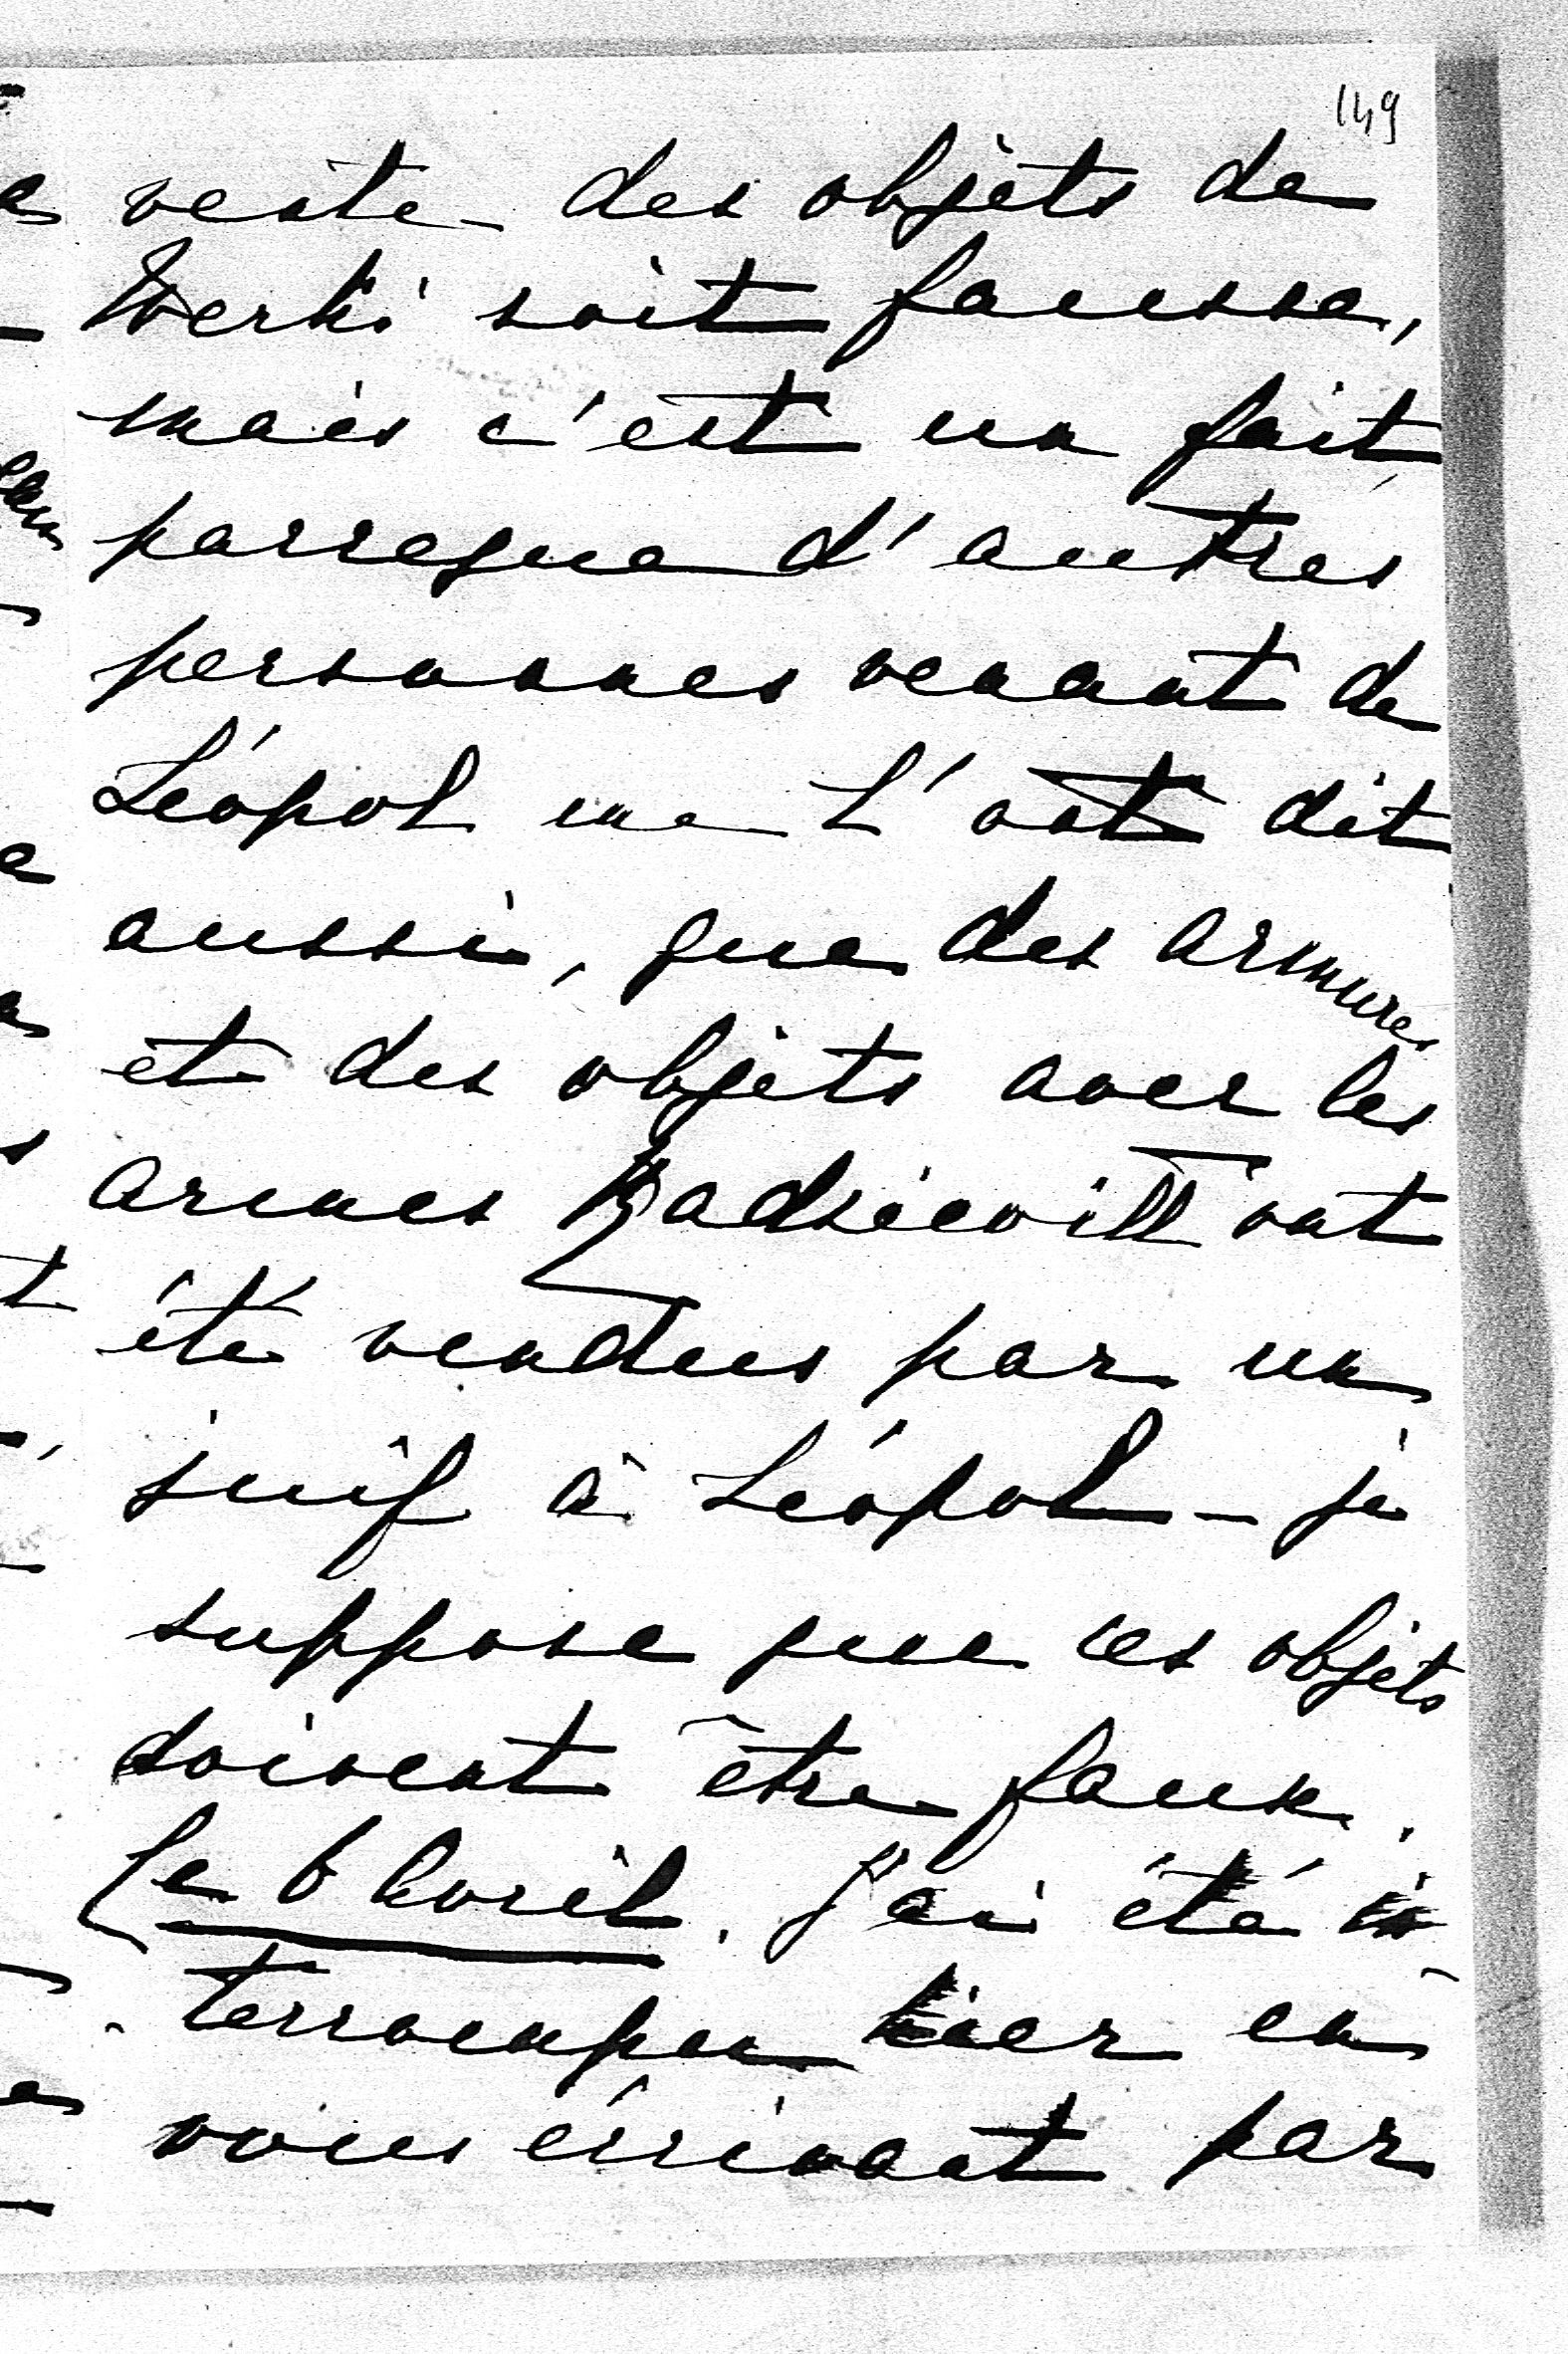 149
vente des objets de
Werki soit fausse,
mais c'est un fait,
parceque d'autres
personnes venant de
Léopol me l'ont dit
aussi, que des armures
et des objets avec les
armes Radziwill ont
été vendus par un
juif à Léopol - je
suppose que ces objets
doivent être faux.
Le 6 Avril. J'ai été in-
terrompu hier en
vous écrivant par